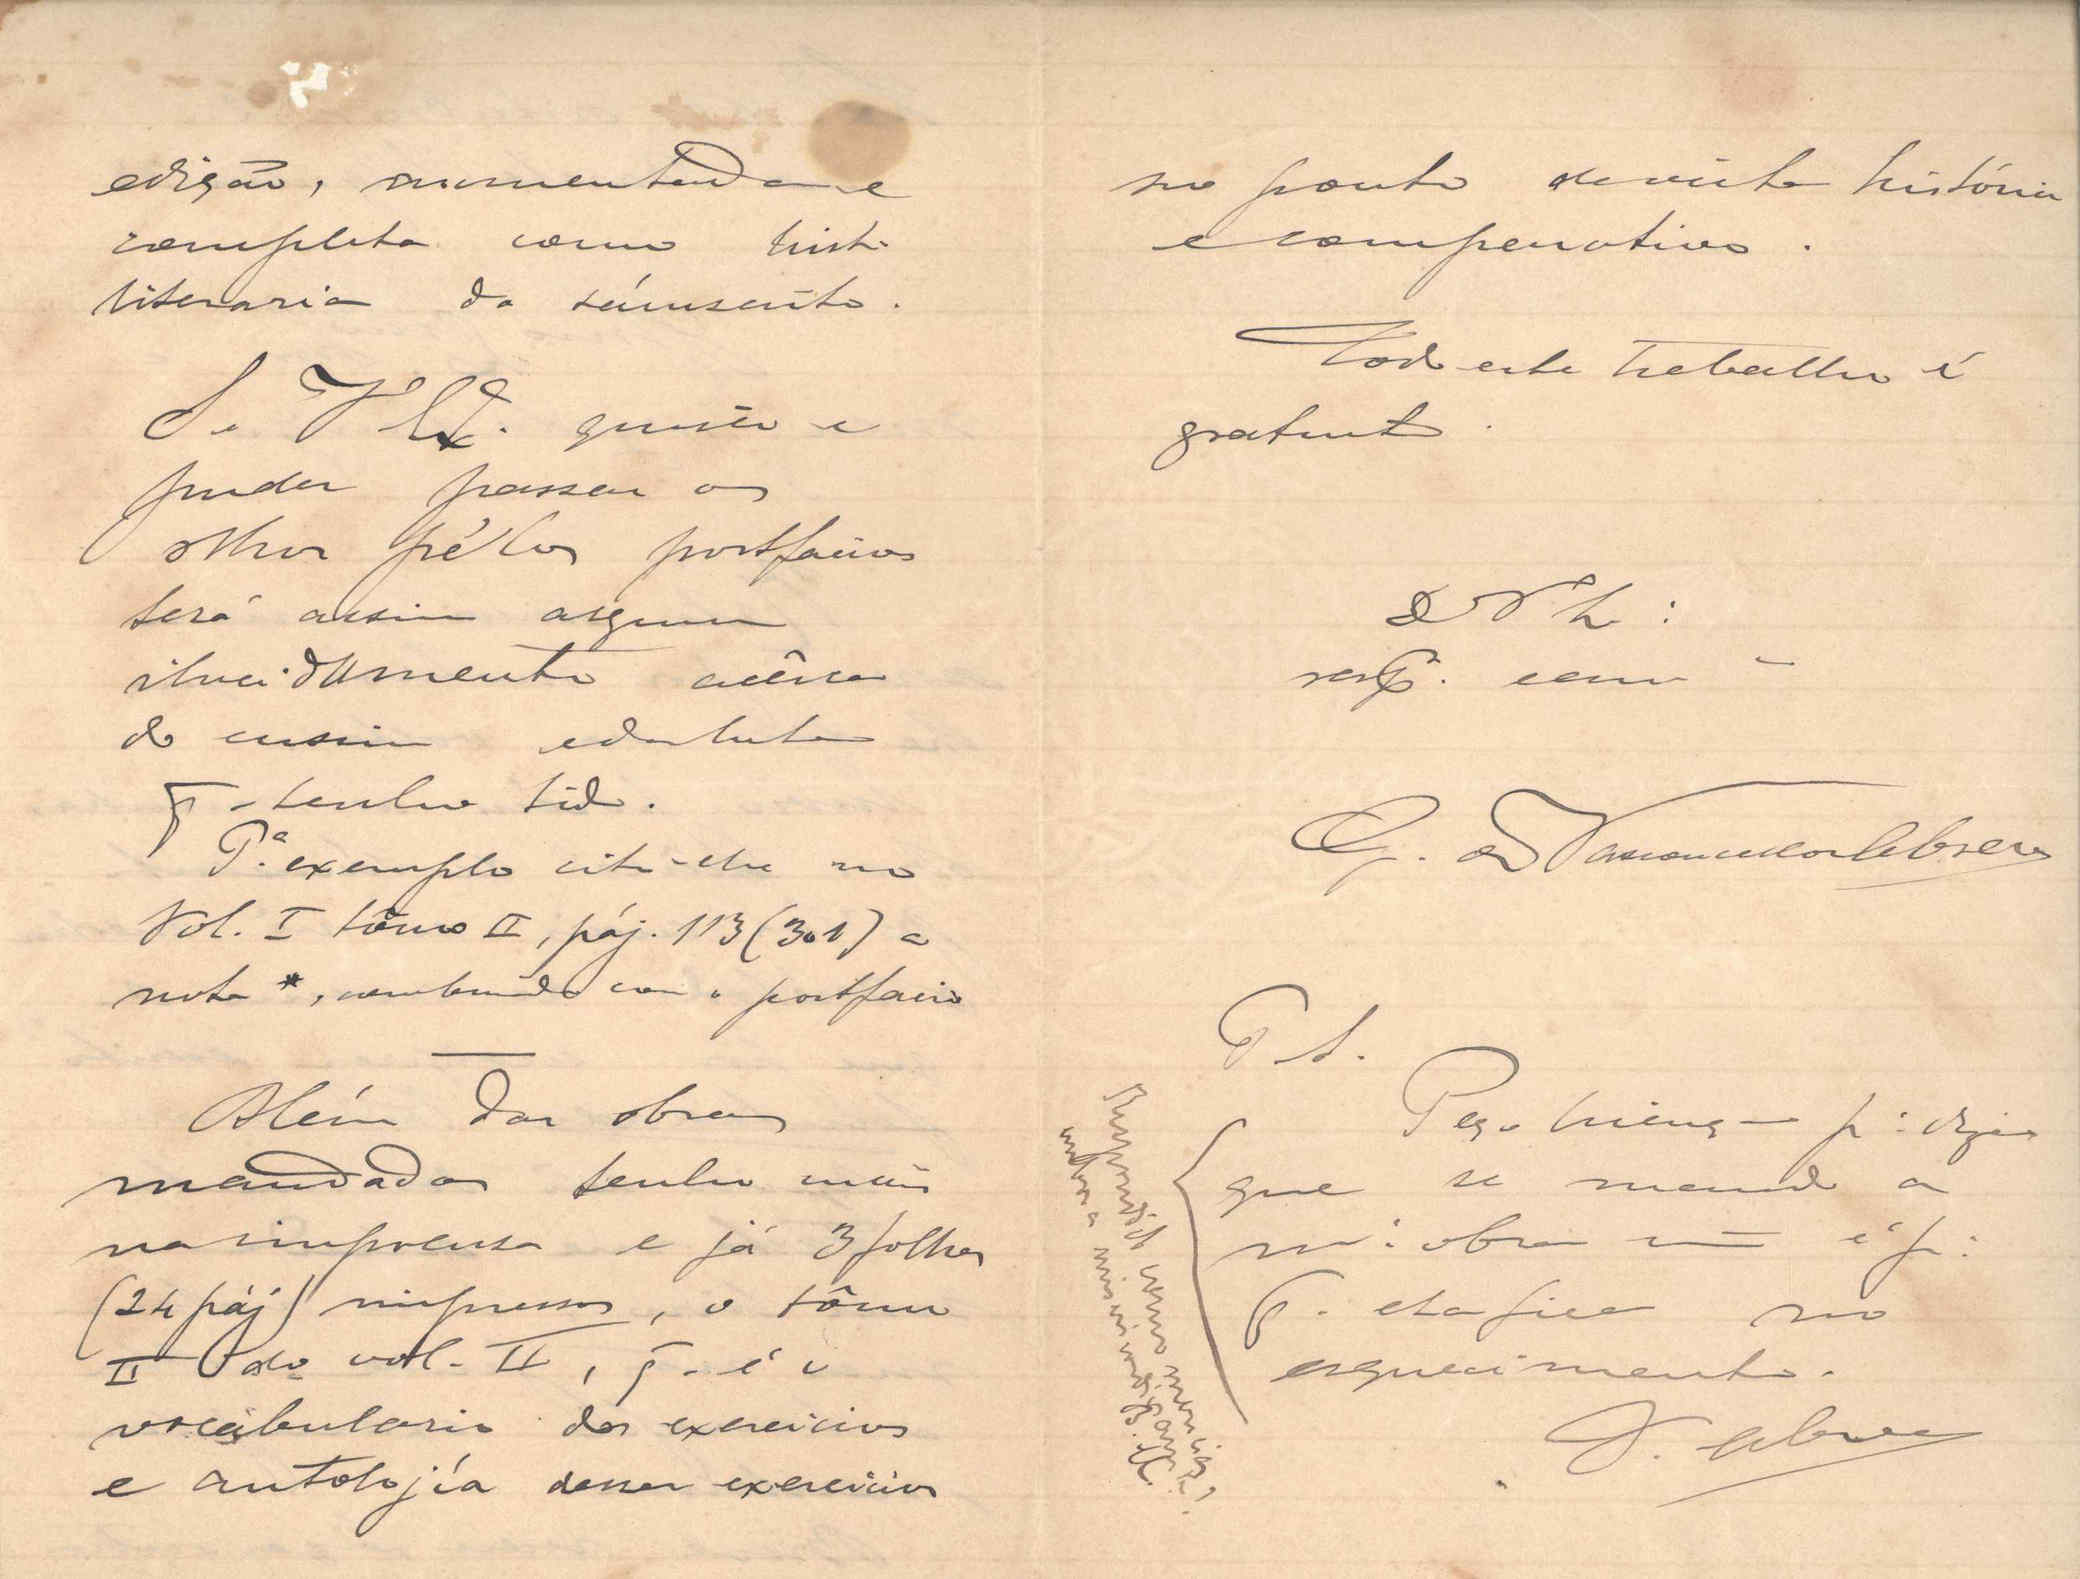 edição, aumentada e
completa como hist.
literaria do sámscrito.
Se V. Ex.ª quisér e
puder passar os
olhos pélos postfacios
terá assim algum
elucidamento acêrca
do ensino
q̃ tenho tido.
P.ª exemplo cito-lhe no
Vol. I tômo II, páj. 113 (301) a
nota *, combinada com o postfacio
Além das obras
mandadas tenho mais
na imprensa e já 3 folhas
(24 páj) impressas, o tômo
II do vol. II, q̃. é o
vocabulario dos exercicios
e antolojía desses exercicios
no ponto de vista história
e comparativo.
Todo este trabalho é
gratuito.
De V. Ex.ª
resp.
G. de Vasconcellos Abreu
P. S.
Peço licença p.ª dizer
que se mando a
m.ª obra não é p.ª
q. ela fique no
esquecimento.
V. Abreu